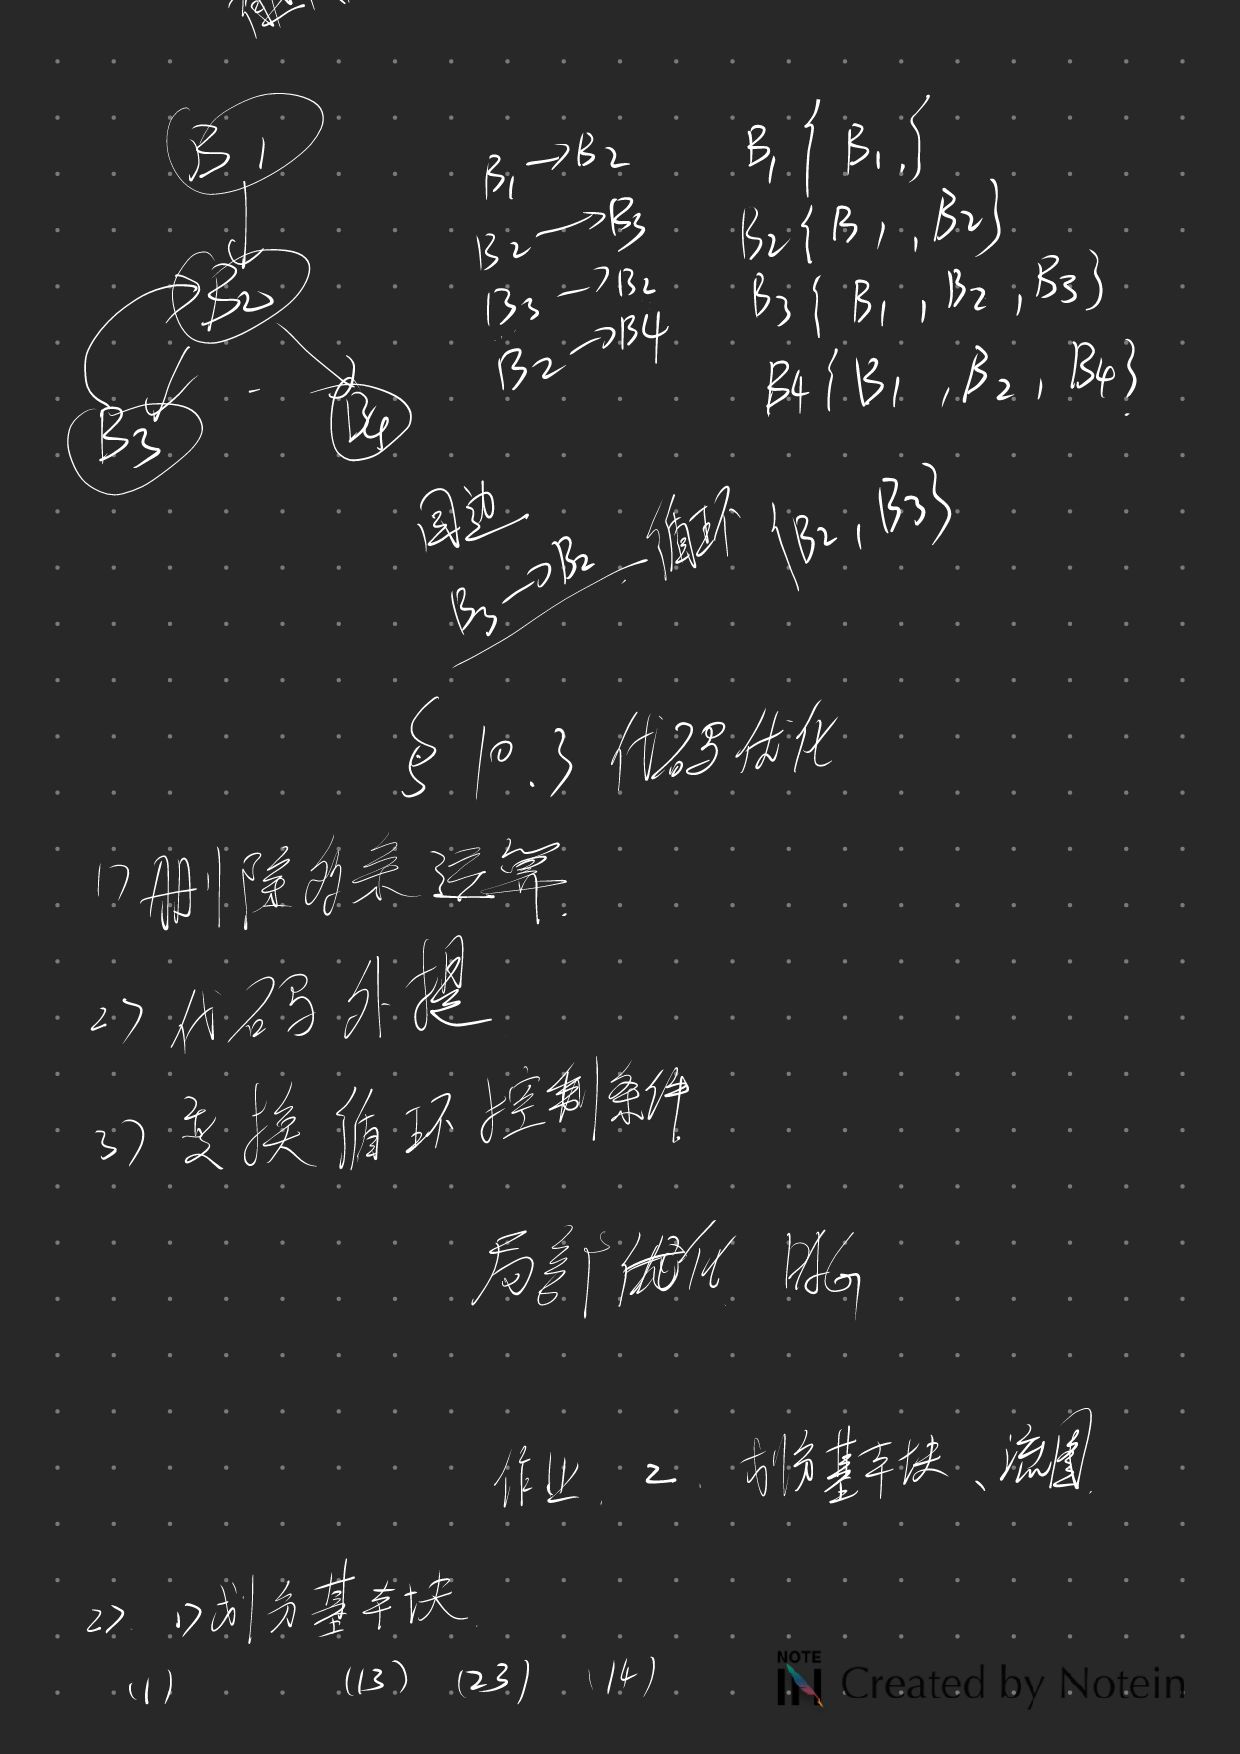 B1
B2
B3
B4
B1→B2
B2→B3
B3→B2
B2→B4
B1{B1,}
B2{B1,B2}
B3{B1,B2,B3}
B4{B1,B2,B4}
回边
B3→B2 循环{B2,B3}
§10.3 代码优化
1)删除多余运算.
2)代码外提
3)变换循环控制条件
局部优化 DAG
作业.2. 划分基本块、流图
2) 1)划分基本块
(1) (13) (23) (14)
NOTE IN Created by Notein